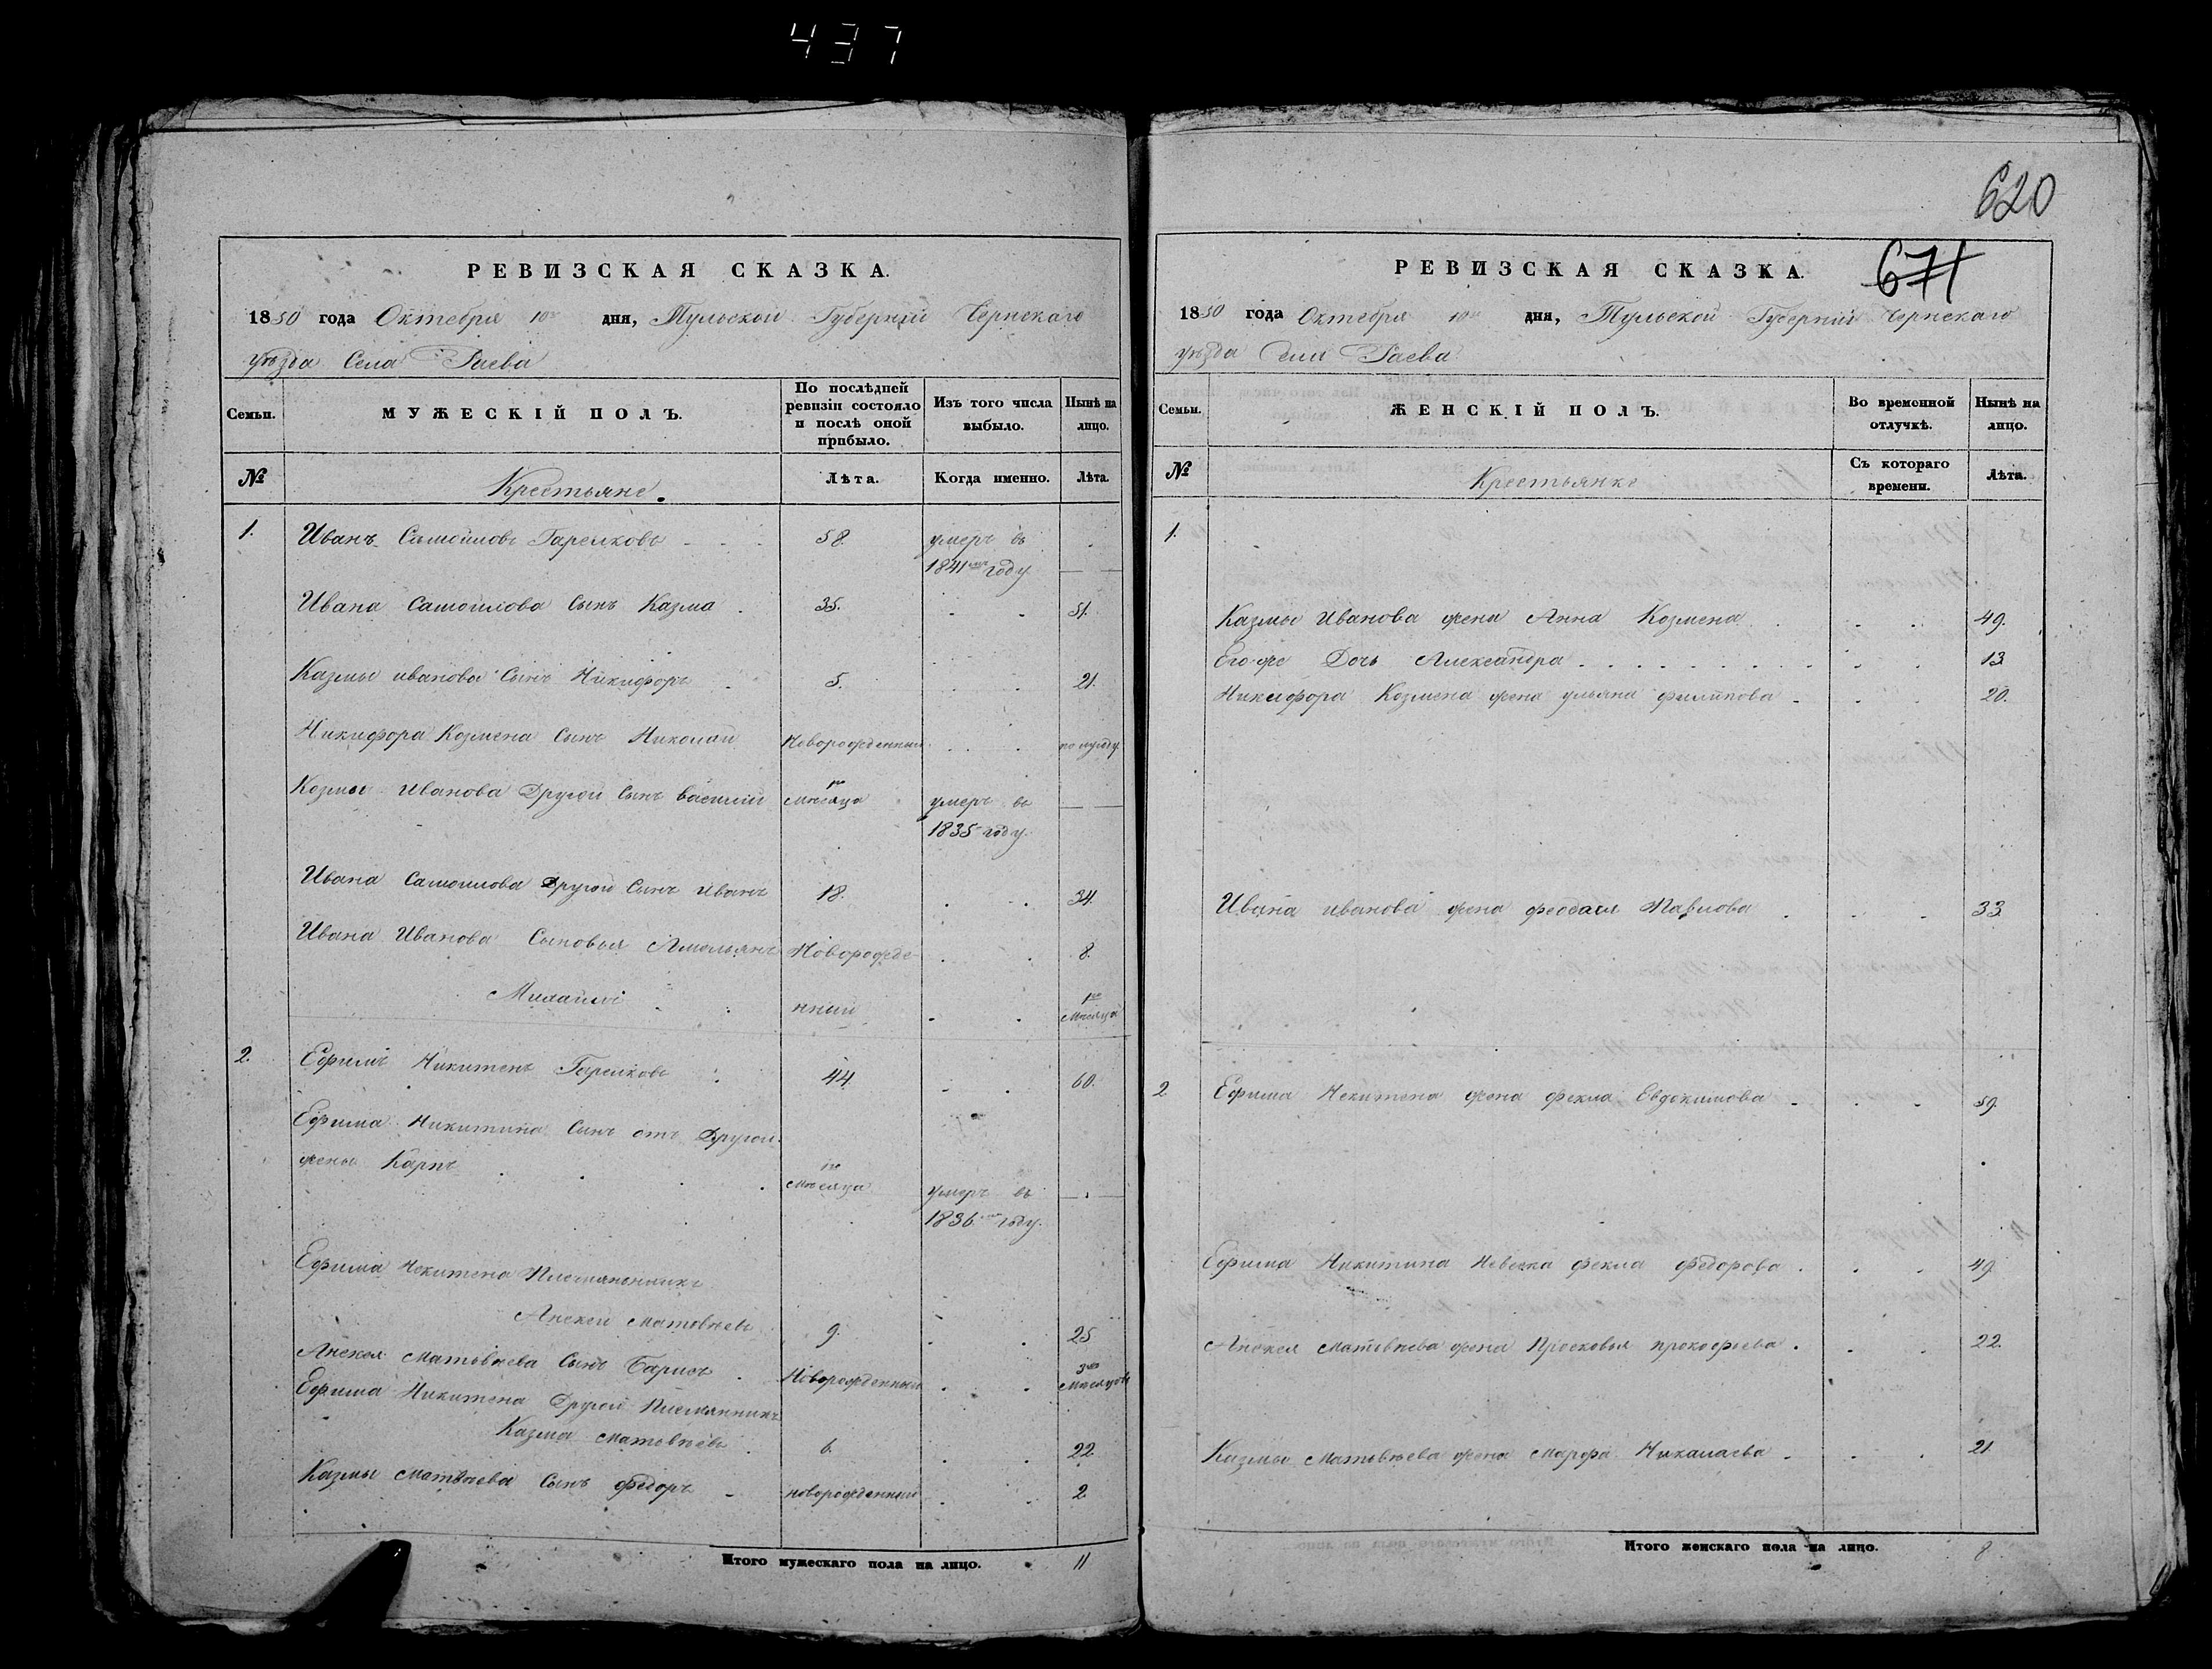 437
РЕВИЗСКАЯ СКАЗКА.
1850 года Октября 10го дня, Тульской Губернiи Чернскаго
уѣзда Села Гаева
Семьи. МУЖЕСКІЙ ПОЛЪ. По послѣдней ревизіи состояло и послѣ оной прибыло. Изъ того числа выбыло. Нынѣ на лицо.
№ Крестьяне. Лѣта. Когда именно. Лѣта.
1. Иванъ Самоиловъ Гарелковъ 58. умеръ въ
1841мъ году
Ивана Самоилова Сынъ Казма 35. 51.
Казмы иванова Сынъ Никифоръ 5. 21.
Никифора Козмена Сынъ Николаи Новорожденный полугоду
Козмы Иванова Другои Сынъ василии 1го месяца умеръ въ
1835 году.
Ивана Самоилова Другои Сынъ иванъ 18. 34.
Ивана Иванова Сыновья Амельянъ Новорожде 8.
Михаило нныи 1го месяца
2. Ефимъ Никитенъ Гарелковъ 44 60.
Ефима Никитина Сынъ отъ Другои
жены Карпъ 1го месяца умеръ въ
1836 году.
Ефима Некитена Племяненникъ
Алексеи Матвѣевъ 9. 25
Алексея матвѣева Сынъ Барисъ Новорожденныи 3 месяцовъ
Ефима Никитена Другои Племянникъ
Казма матвѣевъ 6. 22
Казмы матвѣева Сынъ федоръ новорожденныи 2.
Итого мужескаго пола на лицо. 11
620
671
РЕВИЗСКАЯ СКАЗКА.
1850 года Октября 10го дня, Тульской Губернiи Чернскаго
уѣзда Села Гаева
Семьи. ЖЕНСКІЙ ПОЛЪ. Во временной отлучкѣ. Нынѣ на лицо.
№ Крестьянки Съ котораго времени. Лѣта.
1.
Казмы Иванова жена Анна Козмена 49.
Его же Дочь Александра 13
Никифора Козмена жена ульяна филипова 20.
Ивана иванова жена феодася Павлова 33
2 Ефима Некитена жена фекла Евдокимова 59.
Ефима Никитина Невеска фекла федорова 49.
Алексея матвѣева жена Просковья прокофьева 22.
Казмы матвѣева жена марфа Никалаева 21
Итого женскаго пола на лицо. 8